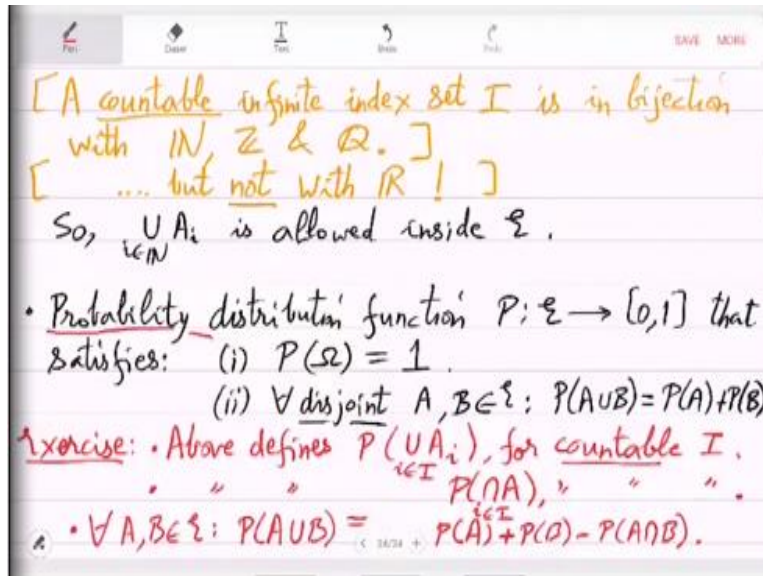 Pen Eraser Text Undo Redo SAVE MORE
[A countable infinite index set I is in bijection
with ℕ, ℤ & ℚ. ]
[ .... but not with ℝ ! ]
So, ∪ A_i is allowed inside ξ .
i∈ℕ
• Probability distributn function P: ξ → [0,1] that
satisfies: (i) P(Ω) = 1 .
(ii) ∀ disjoint A, B ∈ ξ : P(A∪B) = P(A)+P(B)
Exercise: • Above defines P(∪A_i), for countable I .
i∈I
• " " P(∩A), " " " .
i∈I
• ∀ A,B∈ ξ : P(A∪B) = P(A)+P(B) - P(A∩B).
< 24/24 +